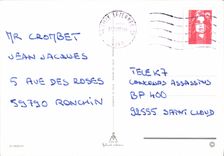 Mr CROMBET
JEAN JACQUES
5 AVE DES ROSES
59790 RONCHIN
TELEK7
CONCOURS ASSASSINS
BP 400
92555 SAINT CLOUD